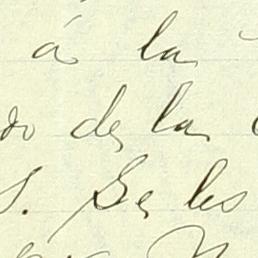 á la
do de la
S. Se les